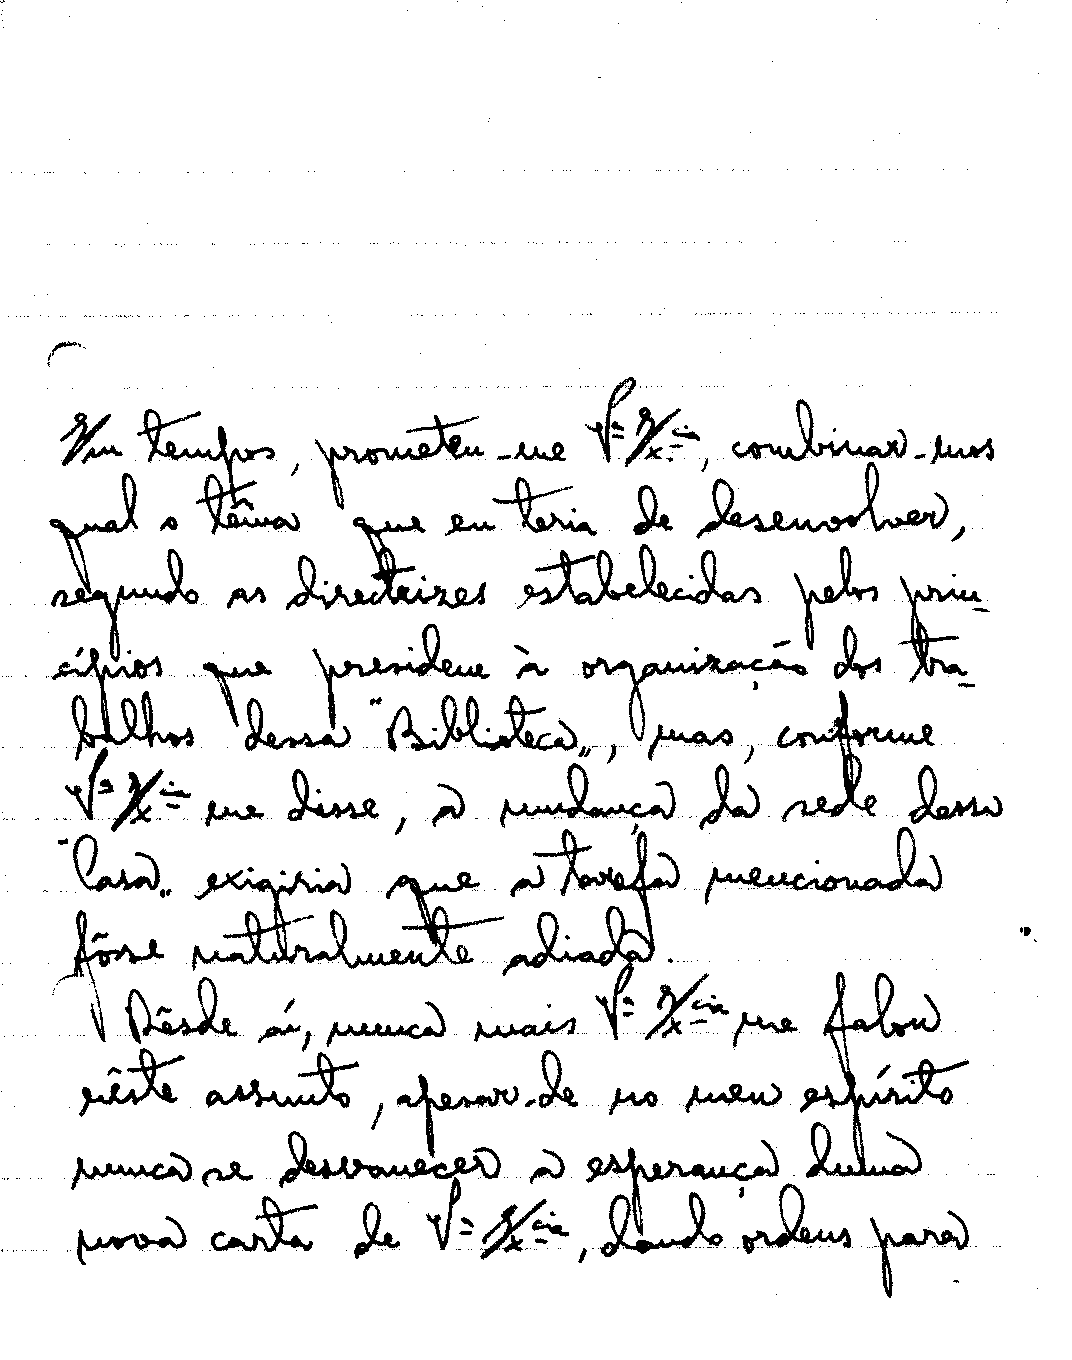 Em tempos, prometeu-me V.ª Ex.cia, combinar-mos
qual o têma que eu teria de desenvolver,
segundo as directrizes estabelecidas pelos prin-
cípios que presidem à organização dos tra-
balhos dessa "Biblioteca", mas, conforme
V.ª Ex.cia me disse, a mudança da sede dessa
"Casa" exigiria que a tarefa mencionada
fôsse naturalmente adiada.
Dêsde aí, nunca mais V.ª Ex.cia me falou
nêste assunto, apesar-de no meu espírito
nunca se desvanecer a esperança duma
nova carta de V.ª Ex.cia, dando ordens para